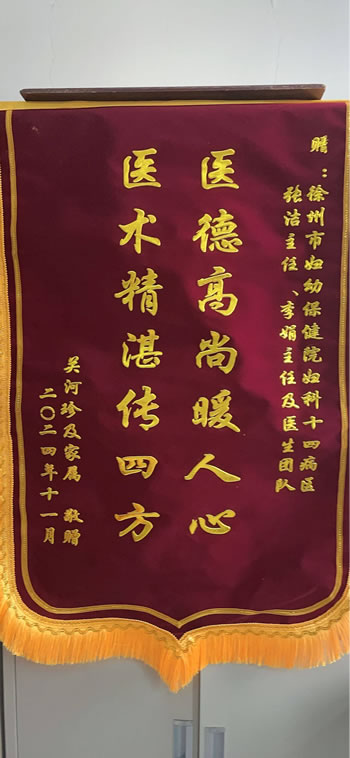 赠：徐州市妇幼保健院妇科十四病区
张洁主任、李娟主任及医生团队
医德高尚暖人心
医术精湛传四方
关河珍及家属 敬赠
二〇二四年十一月